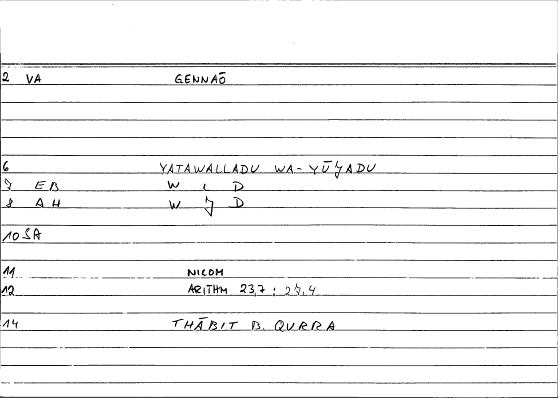 2 VA GENNAŌ
6 YATAWALLADU WA-YŪ7ADU
7 EB W L D
8 AH W 7 D
10 SA
11 NICOM
12 ARITHM 23,7 : 27,4
14 THĀBIT B. QURRA